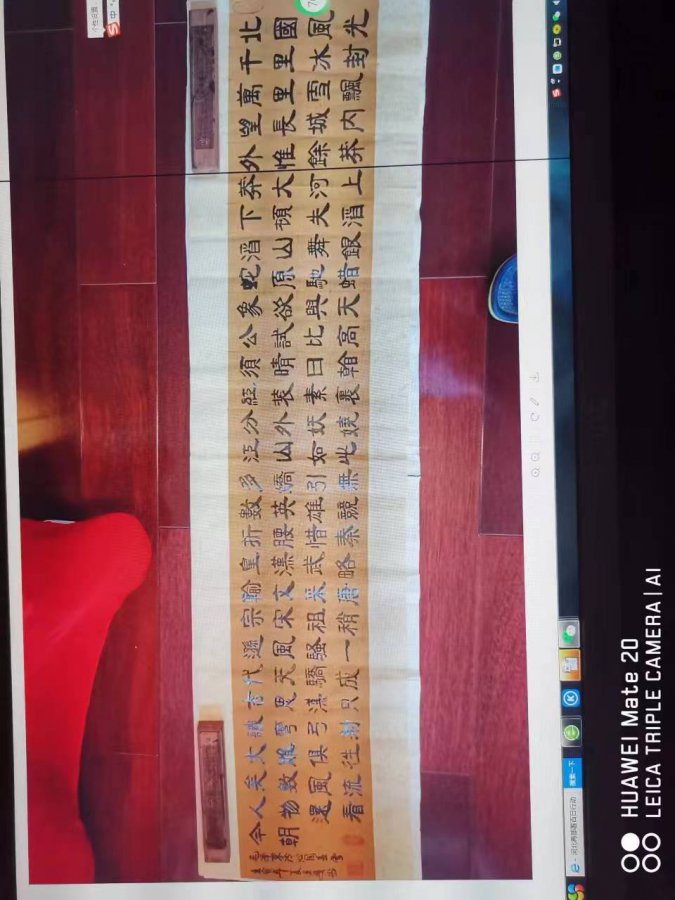 北國風光
千里冰封
萬里雪飄
望長城内
外惟餘莽
莽大河上
下頓失滔
滔山舞銀
蛇原馳蠟
象欲與天
公試比高
須晴日翰
紅装素裹
分外妖娆
江山如此
多嬌引無
數英雄競
折腰惜秦
皇漢武略
输文采唐
宗宋祖稍
遜風騷一
代天驕成
古思漢只
識彎弓射
大雕俱往
矣數風流
人物還看
今朝
毛澤東沁园春雪
搜索一下
HUAWEI Mate 20
LEICA TRIPLE CAMERA | AI